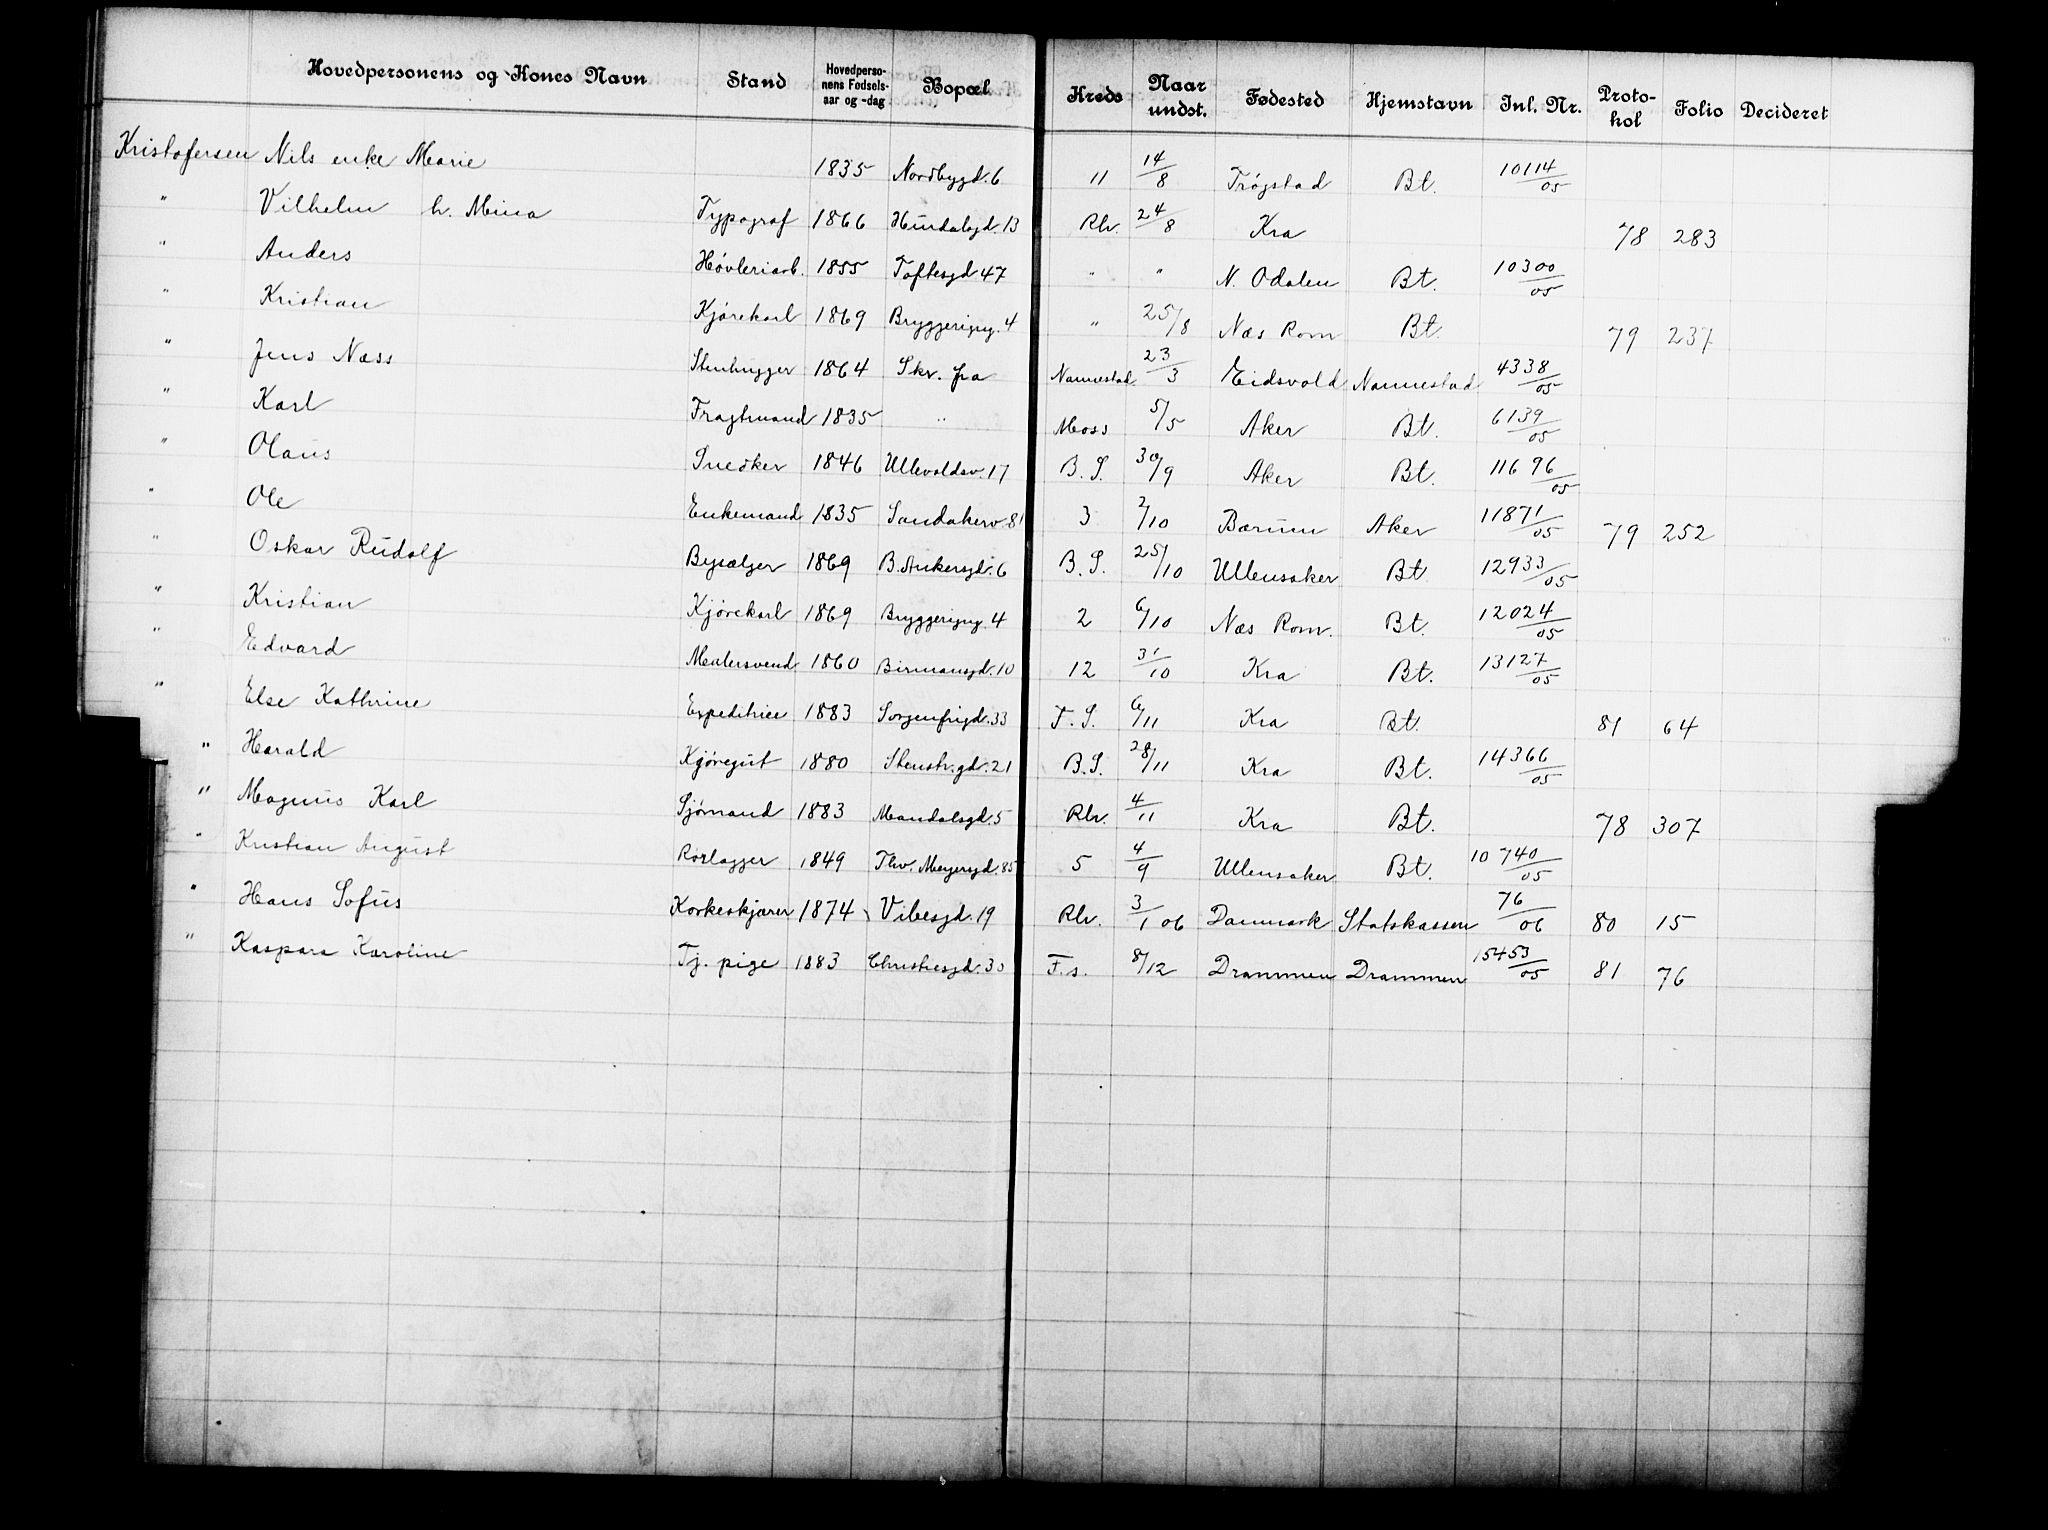 Hovedpersonens og Kones Navn Stand Hovedpersonens Fødselsaar og -dag Bopæl Kreds Naar undst. Fødested Hjemstavn Inl. Nr. Protokol Folio Decideret
Kristofersen Nils enke Marie 1835 Nordbygd. 6 11 14/8 Trøgstad Bt. 10114/05
" Vilhelm h. Mina Typograf 1866 Hurdalsgd. 13 Rlv. 24/8 Kra 78 283
" Anders Høvleriarb. 1855 Toftesgd 47 " " N. Odalen Bt. 10300/05
" Kristian Kjørekarl 1869 Bryggerigg. 4 " 25/8 Næs Rom Bt. 79 237
" Jens Næss Stenhugger 1864 Skr. fra Nannestad 23/3 Eidsvold Nannestad 4338/05
" Karl Fragtmand 1835 " Moss 5/5 Aker Bt. 6139/05
" Olaus Snedker 1846 Ullevoldsv. 17 B. S. 30/9 Aker Bt. 11696/05
" Ole Enkemand 1835 Sandakerv. 81 3 2/10 Bærum Aker 11871/05 79 252
" Oskar Rudolf Bysælger 1869 B. Ankersgd. 6 B. S. 25/10 Ullensaker Bt. 12933/05
" Kristian Kjørekarl 1869 Bryggerigg. 4 2 6/10 Næs Rom. Bt. 12024/05
" Edvard Malersvend 1860 Birmansgd. 10 12 31/10 Kra Bt. 13127/05
" Else Kathrine Expeditrice 1883 Sorgenfrigd. 33 F. S. 6/11 Kra Bt. 81 64
" Harald Kjøregut 1880 Stenstr.gd. 21 B. S. 28/11 Kra Bt. 14366/05
" Magnus Karl Sjømand 1883 Mandalsgd. 5 Rlv. 4/11 Kra Bt. 78 307
" Kristian August Rørlægger 1849 Thv. Meyersgd. 85 5 4/9 Ullensaker Bt. 10740/05
" Hans Sofus Korkeskjærer 1874 Vibesgd. 19 Rlv. 3/1 06 Danmark Statskassen 76/06 80 15
" Kaspara Karoline Tj. pige 1883 Christiesgd. 30 F. s. 8/12 Drammen Drammen 15453/05 81 76